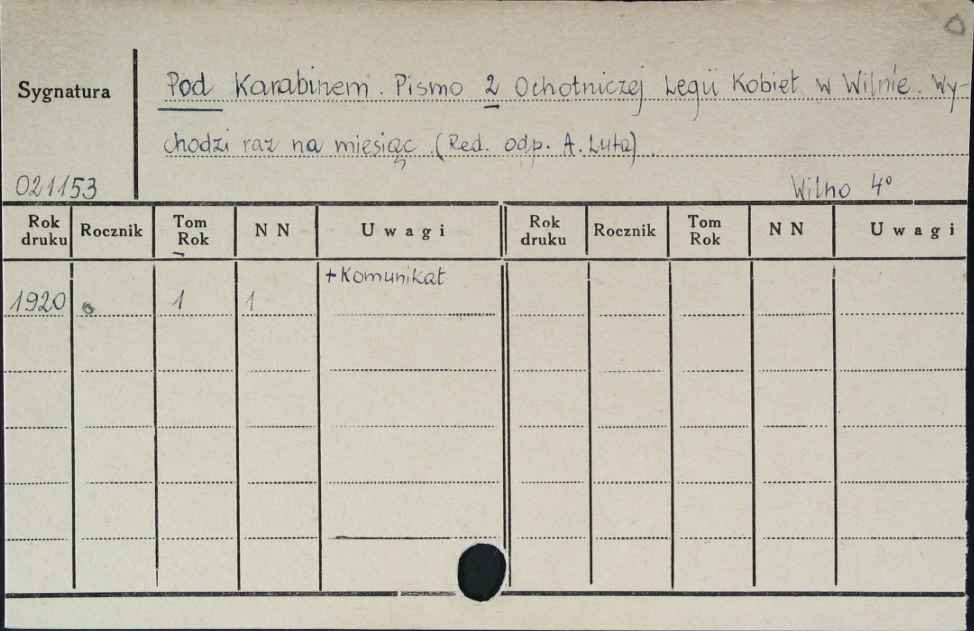 Sygnatura
Pod Karabinem. Pismo 2 Ochotniczej Legii Kobiet w Wilnie. Wy-
chodzi raz na miesiąc. (Red. odp. A. Luta).
021153
Wilno 4°
Rok druku Rocznik Tom Rok NN Uwagi Rok druku Rocznik Tom Rok NN Uwagi
+Komunikat
1920 1 1